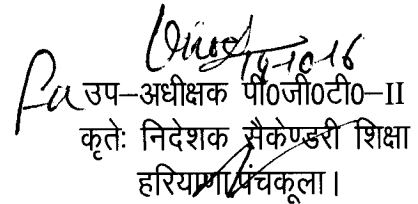 उप–अधीक्षक पी0जी0टी0–II
कृतेः निदेशक सैकेण्डरी शिक्षा
हरियाणा पंचकूला।